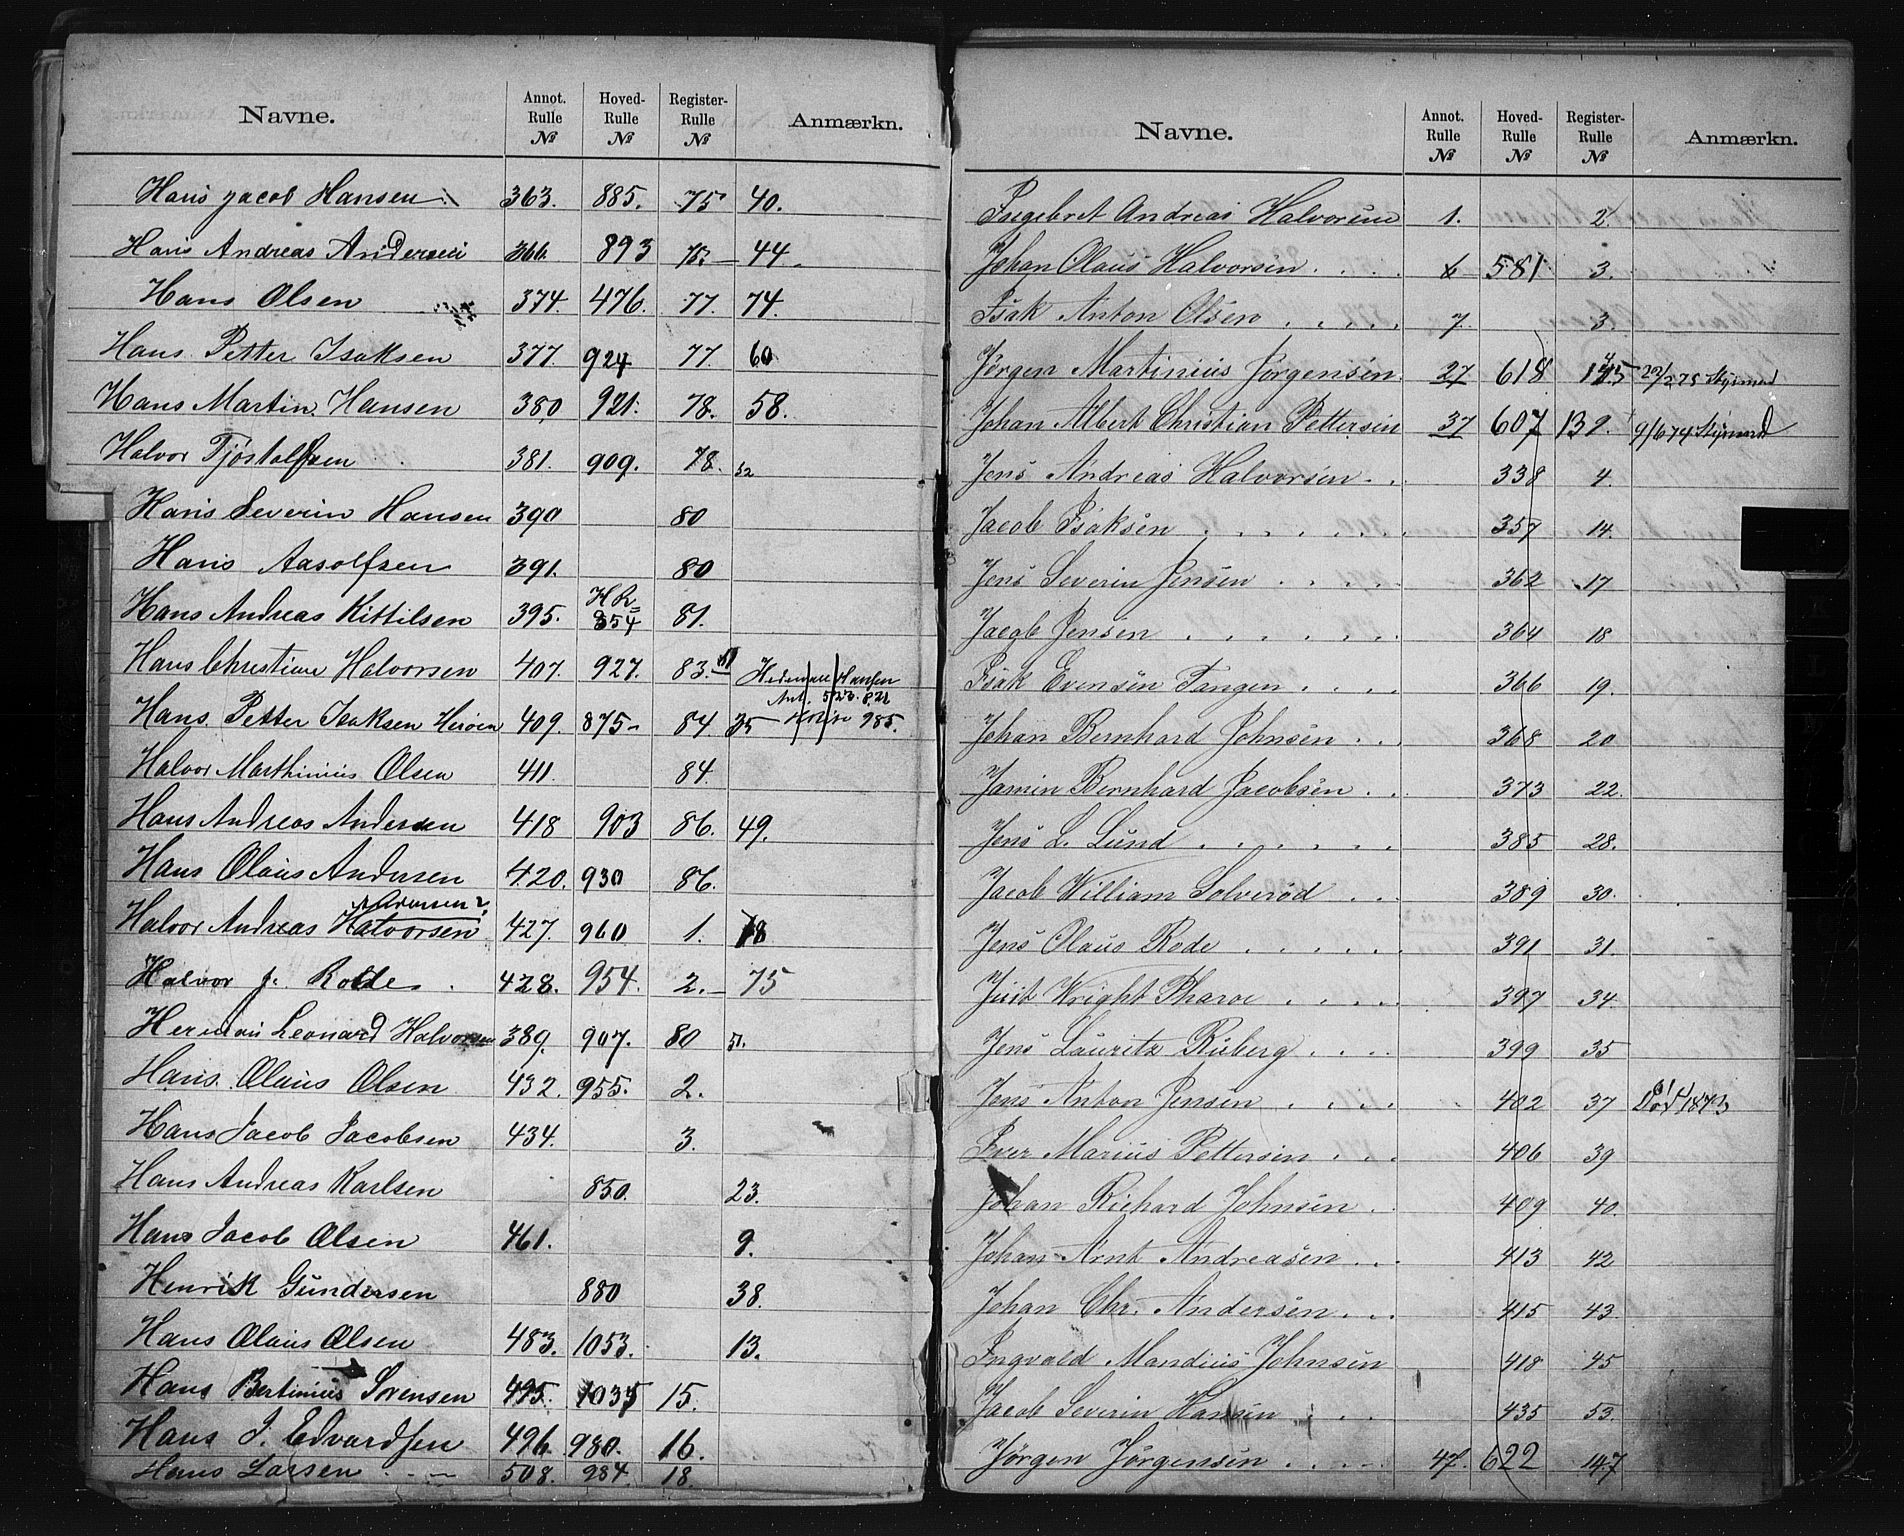 Navne. Annot. Rulle № Hoved- Rulle № Register- Rulle № Anmærkn.
Hans Jacob Hansen 363. 885. 75 40.
Hans Andreas Andersen 366. 893 75. 44
Hans Olsen 374. 476. 77. 74.
Hans Petter Isaksen 377. 924 77. 60
Hans Martin Hansen 380 921. 78. 58.
Halvor Tjøstolfsen 381. 909. 78. 52
Hans Severin Hansen 390 80
Hans Aasolfsen 391. 80
Hans Andreas Kittilsen 395. H R 854 81.
Hans Christian Halvorsen 407. 927. 83. Hansen
Hans Petter Isaksen 409. 875 84 35 985.
Halvor Marthinius Olsen 411. 84.
Hans Andreas Andersen 418 903 86. 49.
Hans Olaus Andersen 420. 930 86.
Andersen?
Halvor Andreas Halvorsen 427. 960 1. 78
Halvor J. Rolde 428. 954. 2. 75
Herman Leonard Halvorsen 389. 907. 80 51.
Hans Olaus Olsen 432. 955. 2.
Hans Jacob Jacobsen 434. 3.
Hans Andreas Karlsen 850. 23.
Hans Jacob Olsen 461. 9.
Henrik Gundersen 880 38.
Hans Olaus Olsen 483. 1053. 13.
Hans Bertinius Sørensen 495. 1035 15.
Hans J. Edvardsen 496. 980. 16.
Hans Larsen 508. 984. 18.
Navne. Annot. Rulle № Hoved- Rulle № Register- Rulle № Anmærkn.
Ingebret Andreas Halvorsen 1. 2.
Johan Olaus Halvorsen 6 581 3.
Isak Anton Olsen 7. 3.
Jørgen Martinius Jørgensen 27 618 145 22/2 75 Styrmd
Johan Albert Christian Pettersen 37 607 139. 9/6 74 Styrmd
Jens Andreas Halvorsen 338 4.
Jacob Isaksen 357 14.
Jens Severin Jensen 362 17
Jacob Jensen 364 18
Isak Evensen Tangen 366 19.
Johan Bernhard Johnsen 368 20
Jamin Bernhard Jacobsen 373 22.
Jens L. Lund 385 28.
Jacob William Solverød 389 30.
Jens Olaus Rode 391 31.
Just Wright Pharoe 397 34.
Jens Lauritz Ruberg 399 35
Jens Anton Jensen 402 37 Død 1873
Iver Marius Pettersen 406 39
Johan Richard Johnsen 409 40.
Johan Arnt Andreasen 413 42
Johan Chr. Andersen 415 43.
Ingvald Mandius Johnsen 418 45
Jacob Severin Hansen 435 53.
Jørgen Jørgensen 47. 622 147